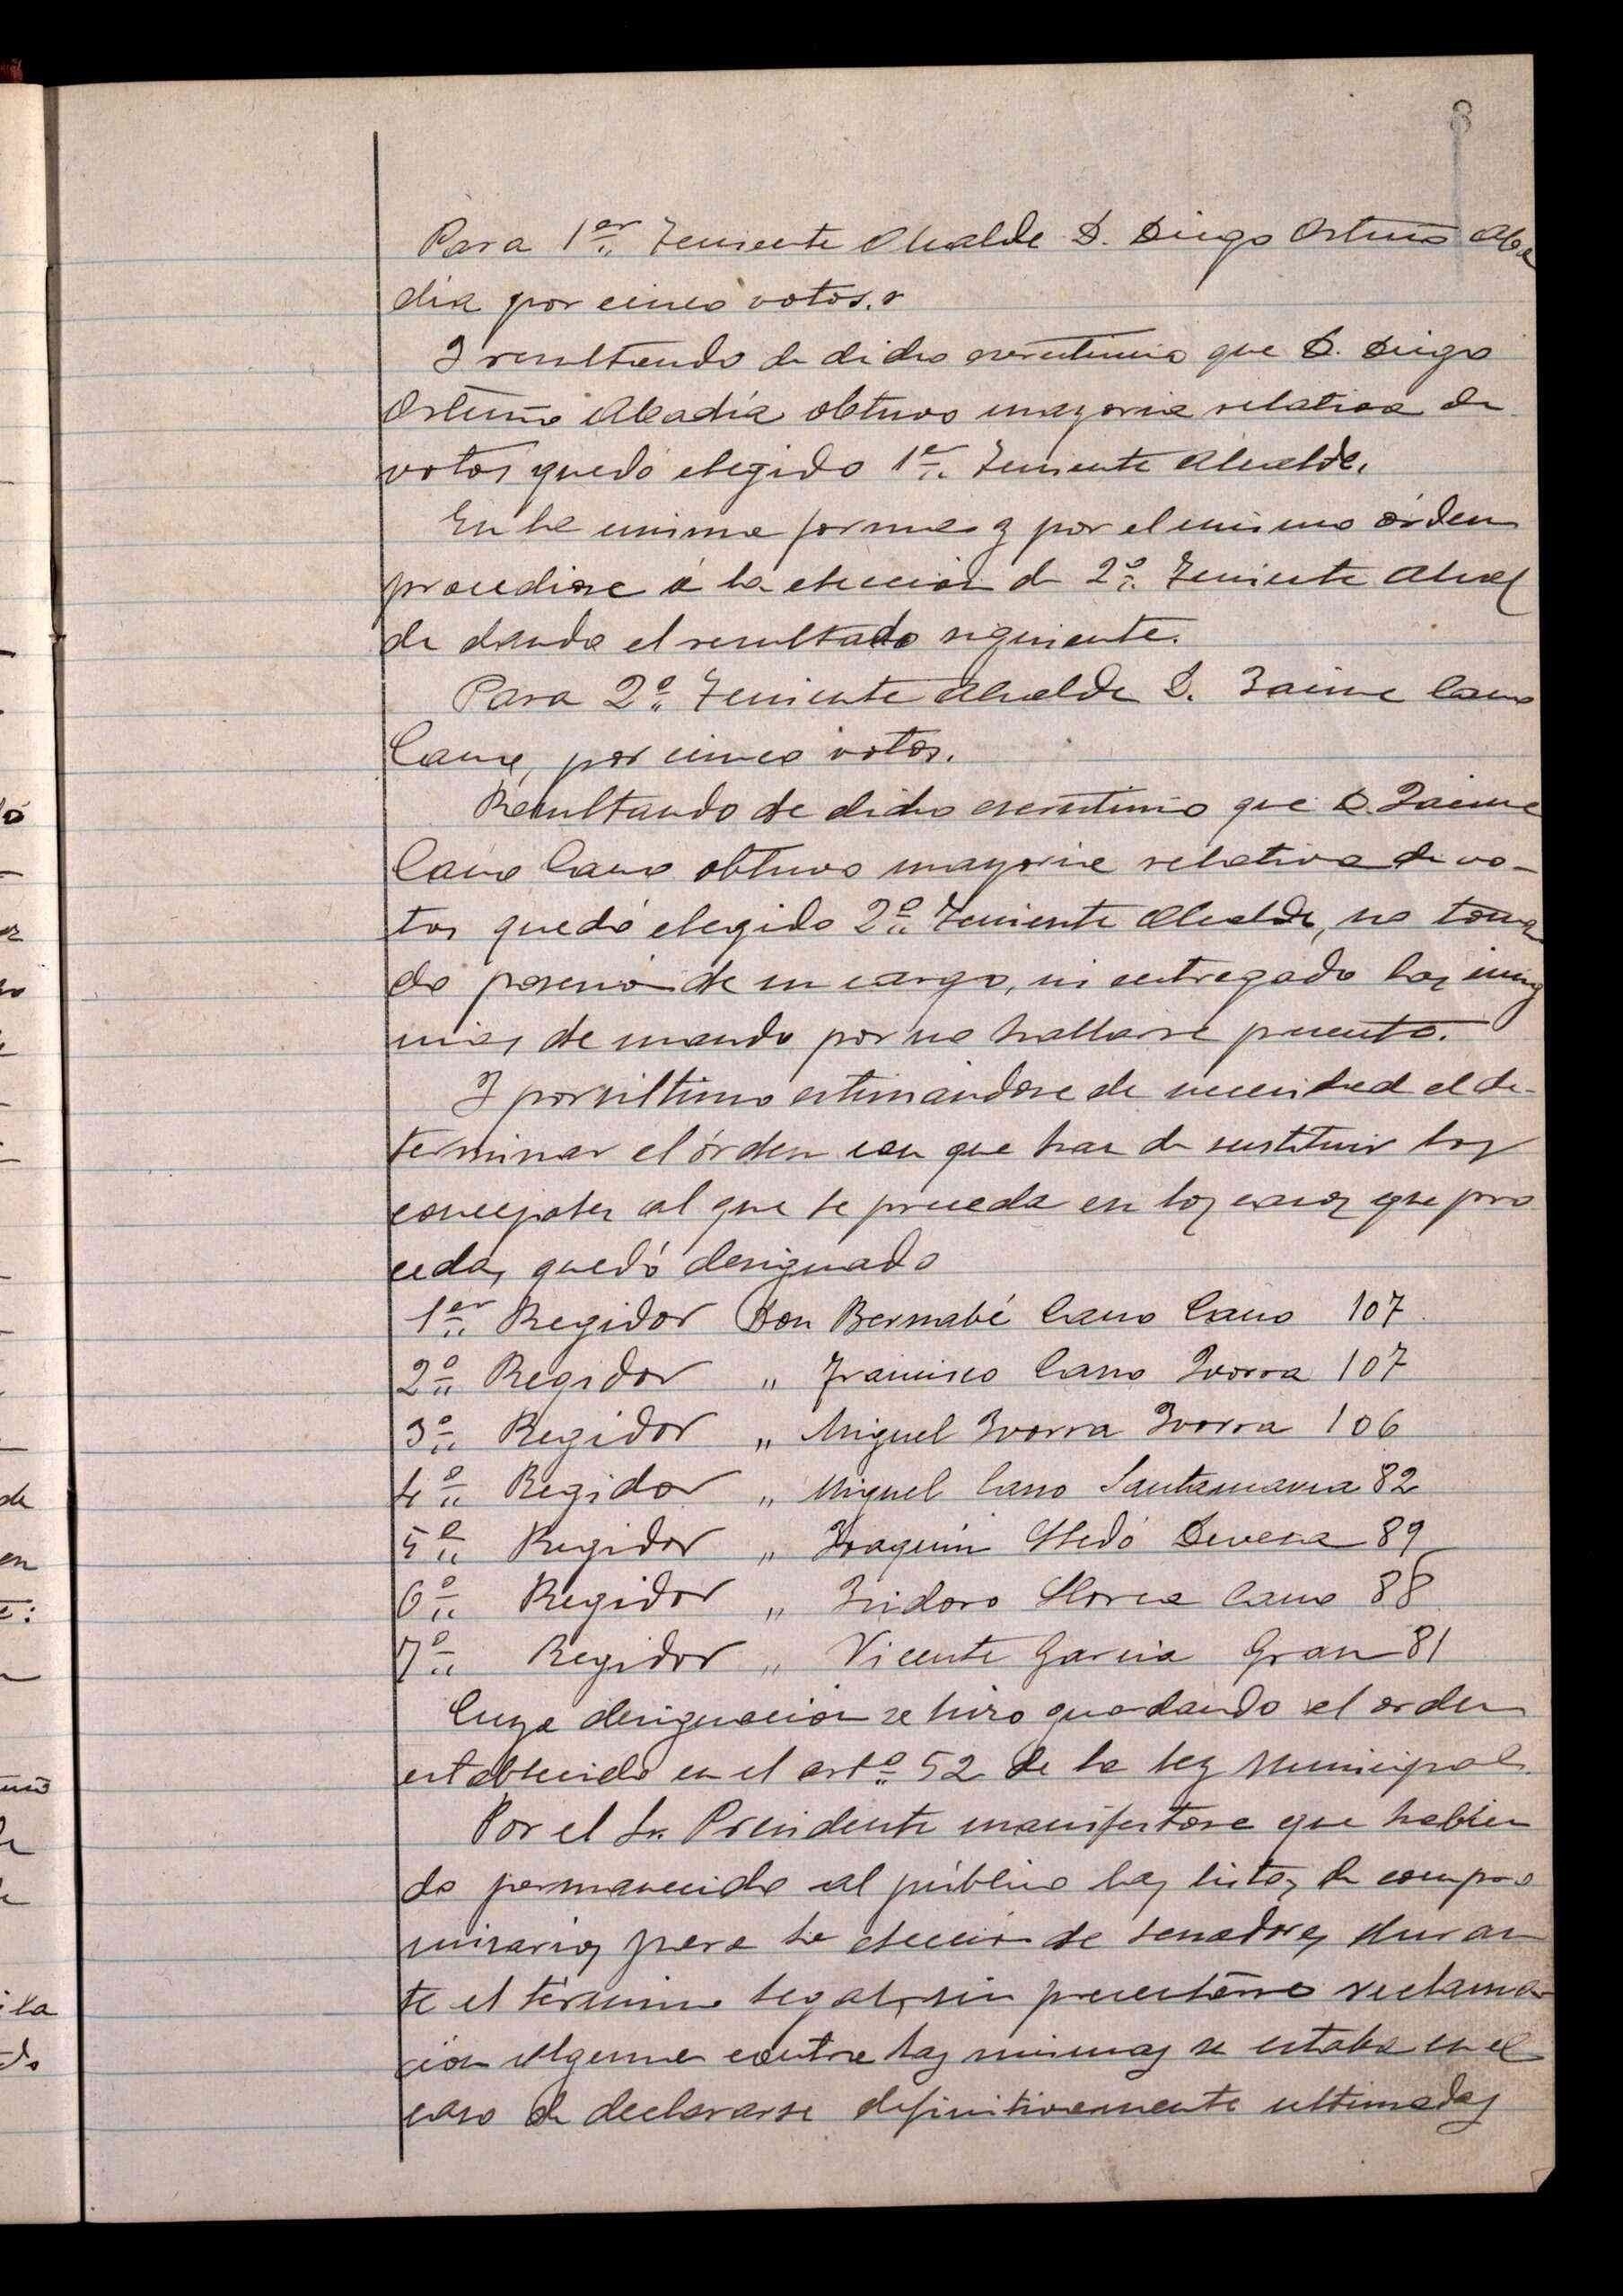 8
Para 1er Teniente Alcalde D. Diego Ortuño Aba
día por cinco votos.
Y resultando de dicho escrutinio que D. Diego
Ortuño Abadía obtuvo mayoria relativa de
votos quedó elegido 1er Teniente Alcalde.
En la misma forma y por el mismo órden
procediose á la elección de 2º Teniente Alcal
de dando el resultado siguiente.
Para 2º Teniente Alcalde D. Jaime Cano
Cano, por cinco votos.
Resultando de dicho escrutinio que D. Jaime
Cano Cano obtuvo mayoria relativa de vo-
tos quedó elegido 2º Teniente Alcalde, no toman
do posesión de su cargo, ni entregado las insig
nias de mando por no hallarse presente.
Y por último estimándose de necesidad el de-
terminar el órden con que han de sustituir los
concejales al que le preceda en los casos que pro
ceda, quedó designado
1er Regidor Don Bernabé Cano Cano 107
2º Regidor " Francisco Cano Ivorra 107
3º Regidor " Miguel Ivorra Ivorra 106
4º Regidor " Miguel Cano Santamaria 82
5º Regidor " Joaquín Lledó Devesa 89
6º Regidor " Isidoro Llorca Cano 88
7º Regidor " Vicente Garcia Gran 81
Cuya designación se hizo guardando el orden
establecido en el artº 52 de la ley Municipal.
Por el Sr. Presidente manifestose que habien
do permanecido al público las listas de compro
misarios para la elección de senadores duran
te el término legal, sin presentarse reclama
ción alguna contra las mismas se estaba en el
caso de declararse definitivamente ultimadas